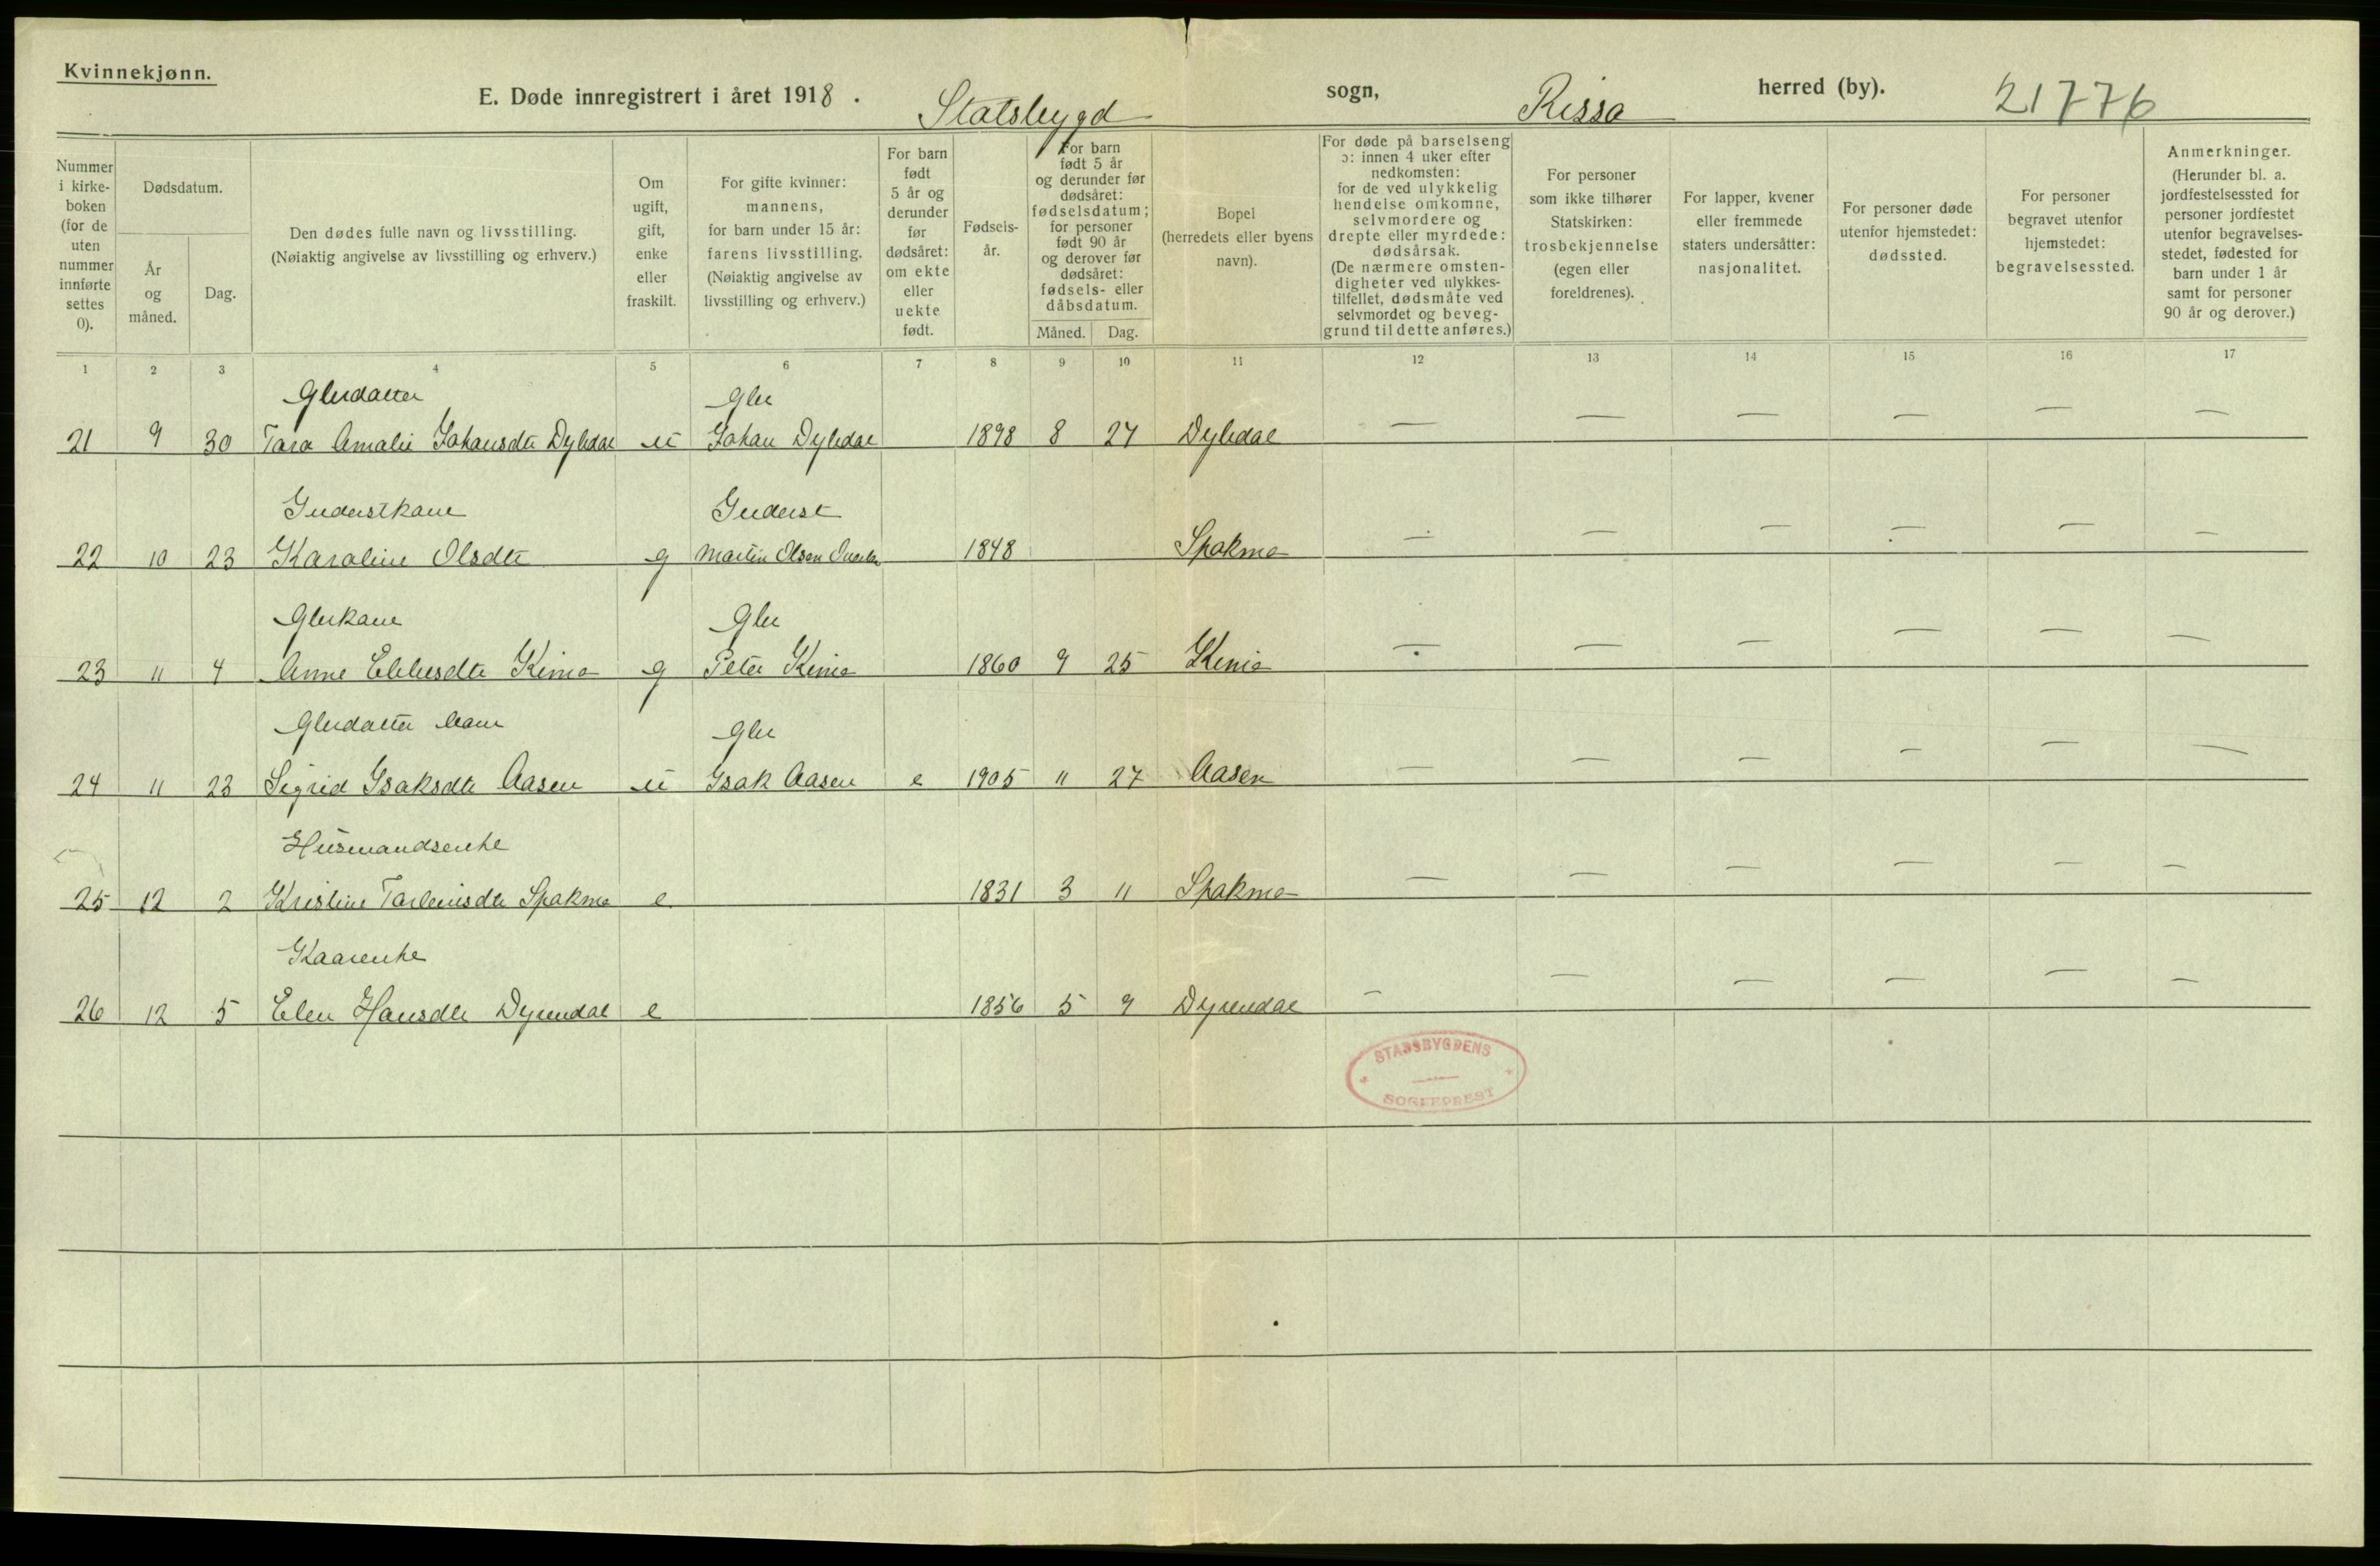 Kvinnekjønn.
E. Døde innregistrert i året 1918. Statsbygd sogn, Rissa herred (by). 21776
Nummer i kirke- boken (for de uten nummer innførte settes 0).
Dødsdatum.
År og måned.
Dag.
Den dødes fulle navn og livsstilling.
(Nøiaktig angivelse av livsstilling og erhverv.)
Om ugift, gift, enke eller fraskilt.
For gifte kvinner: mannens, for barn under 15 år: farens livsstilling. (Nøiaktig angivelse av livsstilling og erhverv.)
For barn født 5 år og derunder før dødsåret: om ekte eller uekte født.
Fødsels- år.
For barn født 5 år og derunder før dødsåret: fødselsdatum; for personer født 90 år og derover før dødsåret: fødsels- eller dåbsdatum.
Måned. Dag.
Bopel (herredets eller byens navn).
For døde på barselseng ɔ: innen 4 uker efter nedkomsten: for de ved ulykkelig hendelse omkomne, selvmordere og drepte eller myrdede: dødsårsak. (De nærmere omsten- digheter ved ulykkes- tilfellet, dødsmåte ved selvmordet og beveg- grund til dette anføres.)
For personer som ikke tilhører Statskirken: trosbekjennelse (egen eller foreldrenes).
For lapper, kvener eller fremmede staters undersåtter: nasjonalitet.
For personer døde utenfor hjemstedet: dødssted.
For personer begravet utenfor hjemstedet: begravelsessted.
Anmerkninger. (Herunder bl. a. jordfestelsessted for personer jordfestet utenfor begravelses- stedet, fødested for barn under 1 år samt for personer 90 år og derover.)
1 2 3 4 5 6 7 8 9 10 11 12 13 14 15 16 17
Glerdatter Gler
21 9 30 Tara Amalie Johansdtr Dyledal u Johan Dyledal 1898 8 27 Dyledal — — — — — —
Inderstkone Inderst
22 10 23 Karoline Olsdtr g Martin Olsen 1848 Spakmo — — — — — —
Glerkone Gler
23 11 4 Anne Kimo g Peter Kimo 1860 9 25 Kimo — — — — — —
Glerdatter barn Gler
24 11 23 Sigrid Isaksdtr Aasen u Isak Aasen e 1905 11 27 Aasen — — — — — —
Husmandsenke
25 12 2 Kristine Spakmo e 1831 3 11 Spakmo — — — — — —
Kaarenke
26 12 5 Elen Hansdtr Dyrendal e 1856 5 9 Dyrendal — — — — — —
STADSBYGDENS
SOGNEPREST